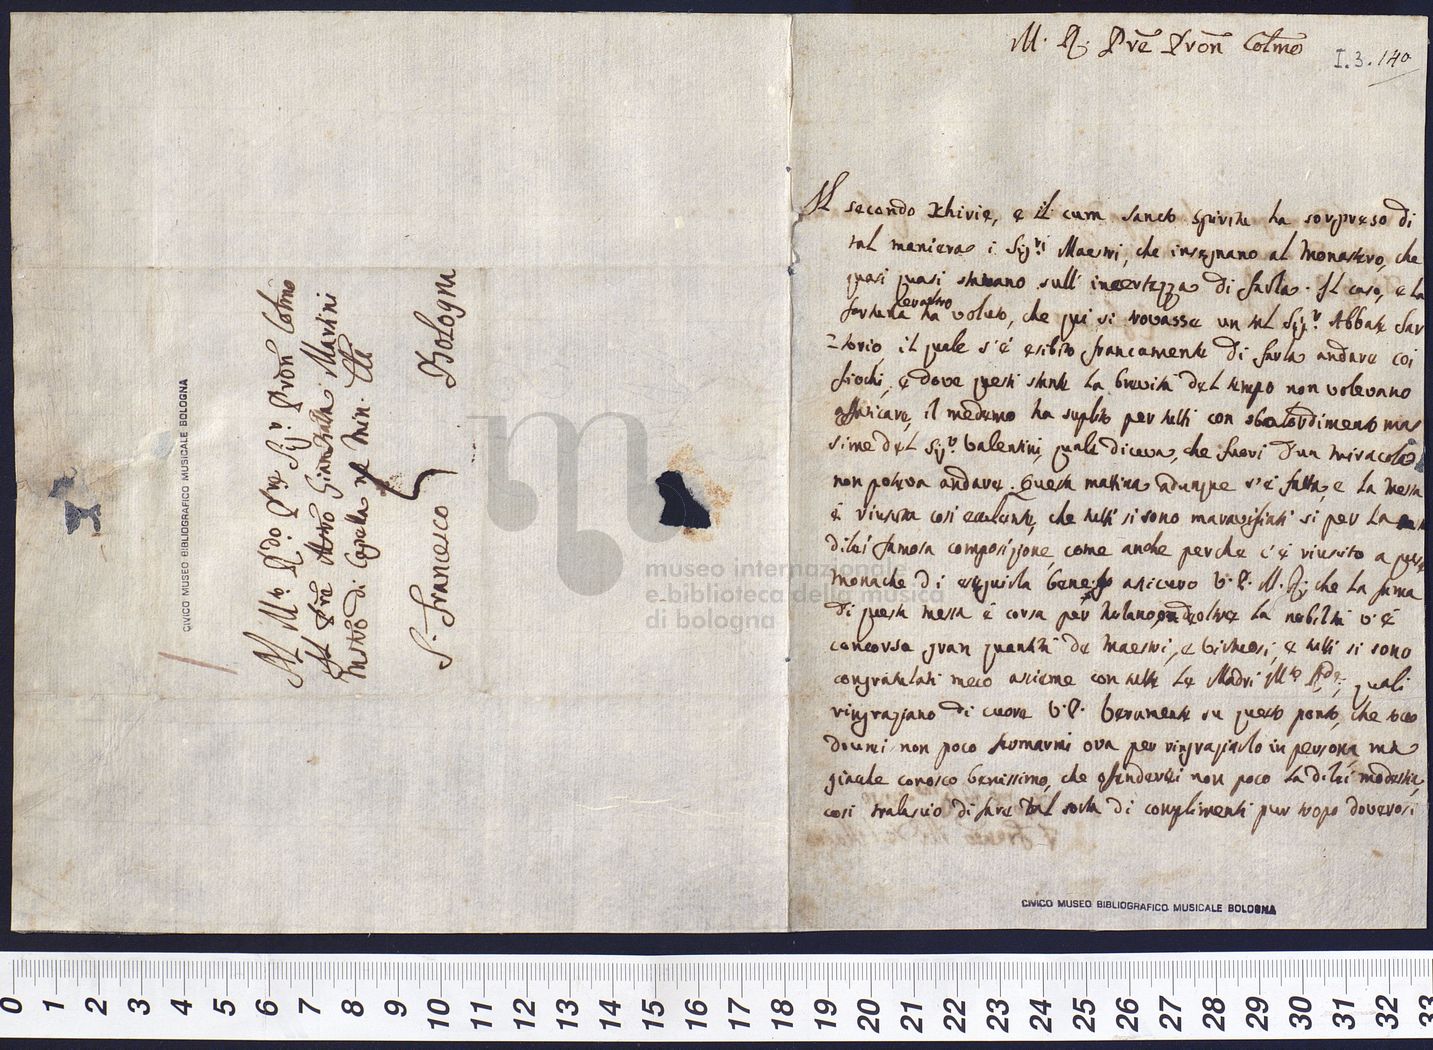 M. R. Pre Pron Colmo
I.3.140
Il secondo Khirie, e il cum sancto spiritu ha sorpreso di
tal maniera i Sig.ri Maestri, che insegnano al Monastero, che
quasi quasi stavano sull' incertezza di farla. Il caso, e la
fortuna ha voluto, che qui si trovasse un tal Sig.r Abbate Sar
torio, il quale s'è esibito francamente di farla andare coi
fiochi, e dove questi stante la brevità del tempo non volevano
afaticare, il medemo ha suplito per tutti con sbalordimento mas
sime del Sig.r Valentini, quale diceva, che fuori d'un miracolo
non poteva andare. Questa matina adunque s'è fatta, e la Messa
è riuscita così ecelente, che tutti si sono maravigliati si per la
di lei famosa composizione, come anche perche s'è riuscito a
Monache di eseguirla bene. asicuro V.P. M.R. che la fama
di questa messa è corsa per Milano, ondeoltre la nobiltà v'è
concorsa gran quantità de Maestri, e virtuosi, e tutti si sono
congratulati meco asieme con tutte le Madri M.to R.de, quali
ringraziano di cuore V.P. Veramente su questo ponto, che
dovrei non poco fermarmi ora per ringraziarlo in persona, ma
giacche conosco benissimo, che ofenderei non poco la di lei modestia,
così tralascio di fare tal sorta di complimenti pur tropo doverosi
CIVICO MUSEO BIBLIOGRAFICO MUSICALE BOLOGNA
Al M.to R.do Pre Sig.r Pron Colmo
Il Pre Mro Giambatta Martini
Mastro di Capella ne Min.
S. Francesco Bologna
CIVICO MUSEO BIBLIOGRAFICO MUSICALE BOLOGNA
museo internazionale
e biblioteca della musica
di bologna
0 1 2 3 4 5 6 7 8 9 10 11 12 13 14 15 16 17 18 19 20 21 22 23 24 25 26 27 28 29 30 31 32 33